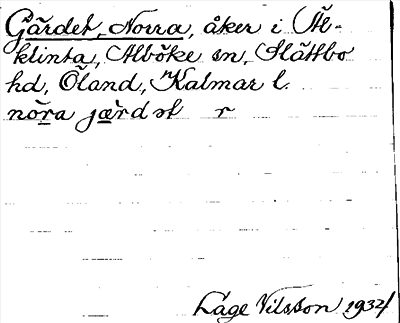 Gärdet, Norra, åker i Äl-
klinta, Alböke sn, Slättbo
hd, Öland, Kalmar l.
nöra jærdet r
Lage Nilsson 1934